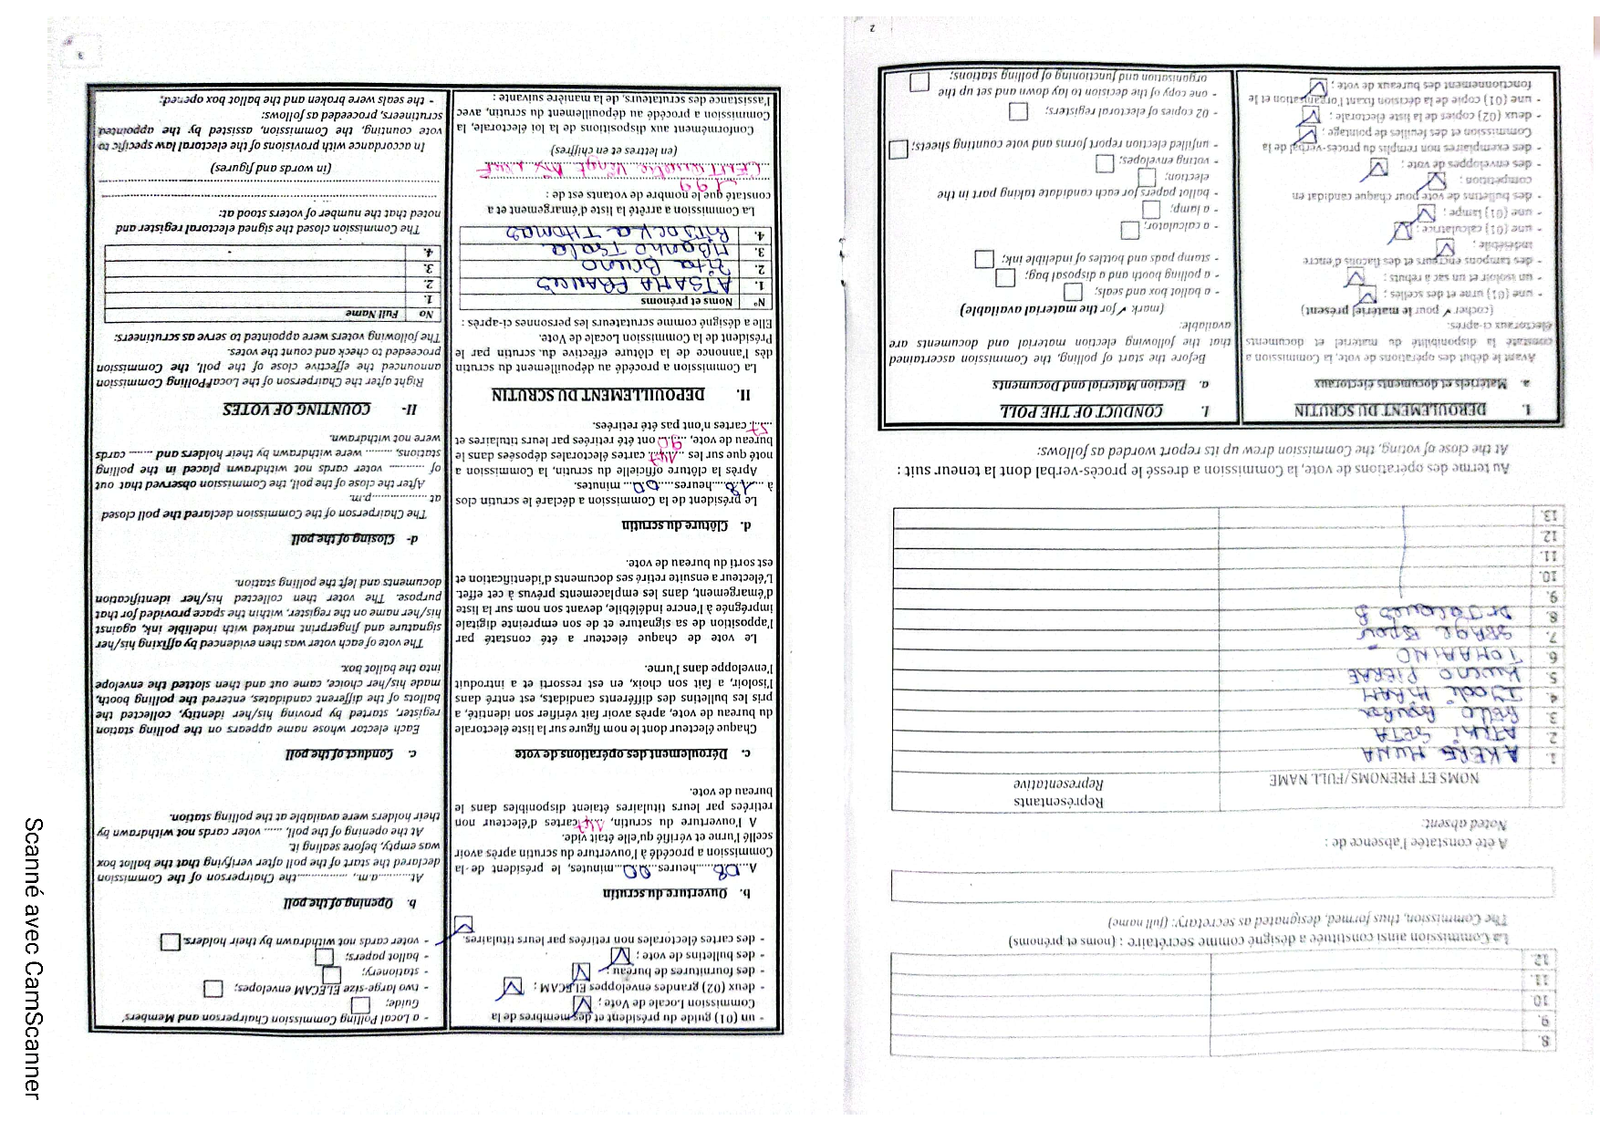 2
8.
9.
10.
11.
12.
La Commission ainsi constituée a désigné comme secrétaire : (noms et prénoms)
The Commission, thus formed, designated as secretary: (full name)
A été constatée l'absence de :
Noted absent:
NOMS ET PRENOMS/FULL NAME
Représentants
Representative
1. AKERE MUNA
2. ATNAI SETA
3. Bello Bouba
4. Issa HIRAM
5. KWENO PIERRE
6. TOMAINO
7. SERGE Espoir
8. Dr Jacques B
9.
10.
11.
12.
13.
Au terme des opérations de vote, la Commission a dressé le procès-verbal dont la teneur suit :
At the close of voting, the Commission drew up its report worded as follows:
I. DEROULEMENT DU SCRUTIN
a. Matériels et documents électoraux
Avant le début des opérations de vote, la Commission a
constaté la disponibilité du matériel et documents
électoraux ci-après:
(cocher ✓ pour le matériel présent)
- une (01) urne et des scellés ;
- un isoloir et un sac à rebuts ;
- des tampons encreurs et des flacons d'encre
indélébile ;
- une (01) calculatrice ;
- une (01) lampe ;
- des bulletins de vote pour chaque candidat en
compétition ;
- des enveloppes de vote ;
- des exemplaires non remplis du procès-verbal de la
Commission et des feuilles de pointage ;
- deux (02) copies de la liste électorale ;
- une (01) copie de la décision fixant l'organisation et le
fonctionnement des bureaux de vote ;
I. CONDUCT OF THE POLL
a. Election Material and Documents
Before the start of polling, the Commission ascertained
that the following election material and documents are
available:
(mark ✓ for the material available)
- a ballot box and seals;
- a polling booth and a disposal bag;
- stamp pads and bottles of indelible ink;
- a calculator;
- a lamp;
- ballot papers for each candidate taking part in the
election;
- voting envelopes;
- unfilled election report forms and vote counting sheets;
- 02 copies of electoral registers;
- one copy of the decision to lay down and set up the
organisation and functioning of polling stations;
3
- un (01) guide du président et des membres de la
Commission Locale de Vote ;
- deux (02) grandes enveloppes ELECAM ;
- des fournitures de bureau ;
- des bulletins de vote ;
- des cartes électorales non retirées par leurs titulaires.
b. Ouverture du scrutin
A 08 heures 00 minutes, le président de la
Commission a procédé à l'ouverture du scrutin après avoir
scellé l'urne et vérifié qu'elle était vide.
A l'ouverture du scrutin, 147 cartes d'électeur non
retirées par leurs titulaires étaient disponibles dans le
bureau de vote.
c. Déroulement des opérations de vote
Chaque électeur dont le nom figure sur la liste électorale
du bureau de vote, après avoir fait vérifier son identité, a
pris les bulletins des différents candidats, est entré dans
l'isoloir, a fait son choix, en est ressorti et a introduit
l'enveloppe dans l'urne.
Le vote de chaque électeur a été constaté par
l'apposition de sa signature et de son empreinte digitale
imprégnée à l'encre indélébile, devant son nom sur la liste
d'émargement, dans les emplacements prévus à cet effet.
L'électeur a ensuite retiré ses documents d'identification et
est sorti du bureau de vote.
d. Clôture du scrutin
Le président de la Commission a déclaré le scrutin clos
à 18 heures 00 minutes.
Après la clôture officielle du scrutin, la Commission a
noté que sur les 147 cartes électorales déposées dans le
bureau de vote, 90 ont été retirées par leurs titulaires et
57 cartes n'ont pas été retirées.
II. DEPOUILLEMENT DU SCRUTIN
La Commission a procédé au dépouillement du scrutin
dès l'annonce de la clôture effective du scrutin par le
Président de la Commission Locale de Vote.
Elle a désigné comme scrutateurs les personnes ci-après :
N° Noms et prénoms
1. ATSAMA FRANCIS
2. Zita Bruno
3. MBANHO Tsala
4. BITSOCKA THOMAS
La Commission a arrêté la liste d'émargement et a
constaté que le nombre de votants est de :
199
CENT quatre vingt dix neuf
(en lettres et en chiffres)
Conformément aux dispositions de la loi électorale, la
Commission a procédé au dépouillement du scrutin, avec
l'assistance des scrutateurs, de la manière suivante :
- a Local Polling Commission Chairperson and Members'
Guide;
- two large-size ELECAM envelopes;
- stationery;
- ballot papers;
- voter cards not withdrawn by their holders.
b. Opening of the poll
At..........a.m., ...............the Chairperson of the Commission
declared the start of the poll after verifying that the ballot box
was empty, before sealing it.
At the opening of the poll, ...... voter cards not withdrawn by
their holders were available at the polling station.
c. Conduct of the poll
Each elector whose name appears on the polling station
register, started by proving his/her identity, collected the
ballots of the different candidates, entered the polling booth,
made his/her choice, came out and then slotted the envelope
into the ballot box.
The vote of each voter was then evidenced by affixing his/her
signature and fingerprint marked with indelible ink, against
his/her name on the register, within the space provided for that
purpose. The voter then collected his/her identification
documents and left the polling station.
d- Closing of the poll
The Chairperson of the Commission declared the poll closed
at .................p.m.
After the close of the poll, the Commission observed that out
of .......... voter cards not withdrawn placed in the polling
stations, ........ were withdrawn by their holders and ...... cards
were not withdrawn.
II- COUNTING OF VOTES
Right after the Chairperson of the Local Polling Commission
announced the effective close of the poll, the Commission
proceeded to check and count the votes.
The following voters were appointed to serve as scrutineers:
No Full Name
1.
2.
3.
4.
The Commission closed the signed electoral register and
noted that the number of voters stood at:
(in words and figures)
In accordance with provisions of the electoral law specific to
vote counting, the Commission, assisted by the appointed
scrutineers, proceeded as follows:
- the seals were broken and the ballot box opened;
Scanné avec CamScanner